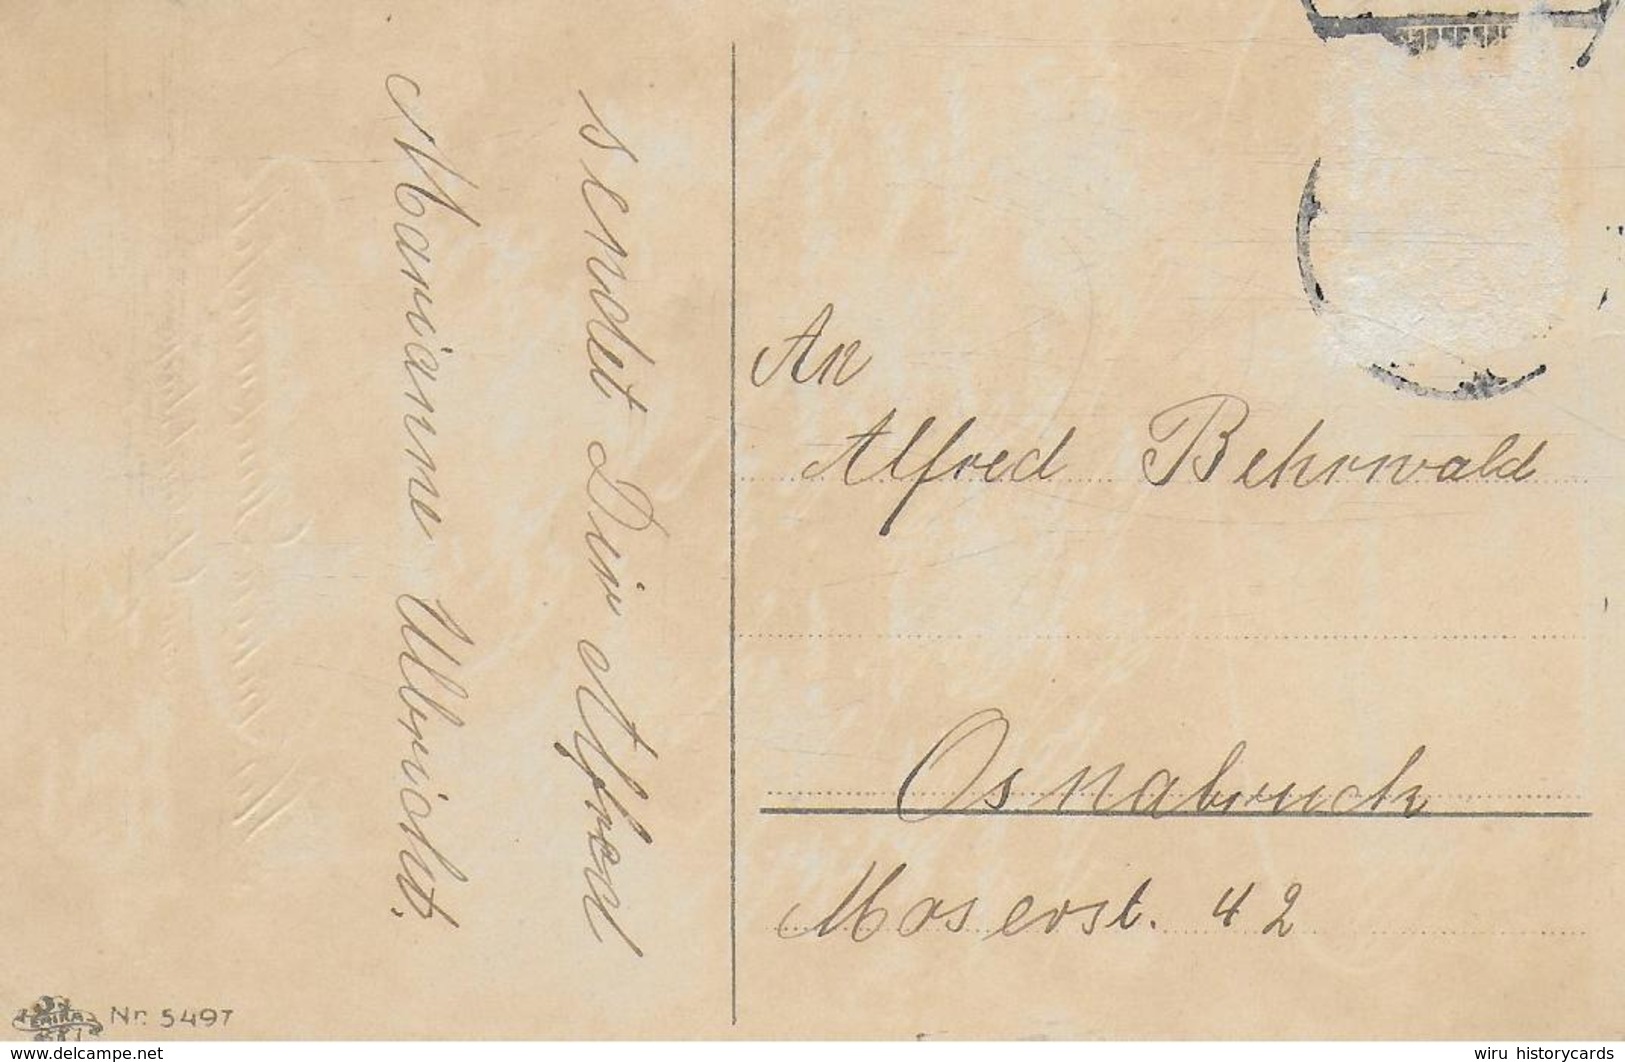 sendet Dir Alfred
Marianne Ulbricht.
An
Alfred Behrwald
Osnabruck
Moserst. 42
Nr. 5497
www.delcampe.net
wiru_historycards